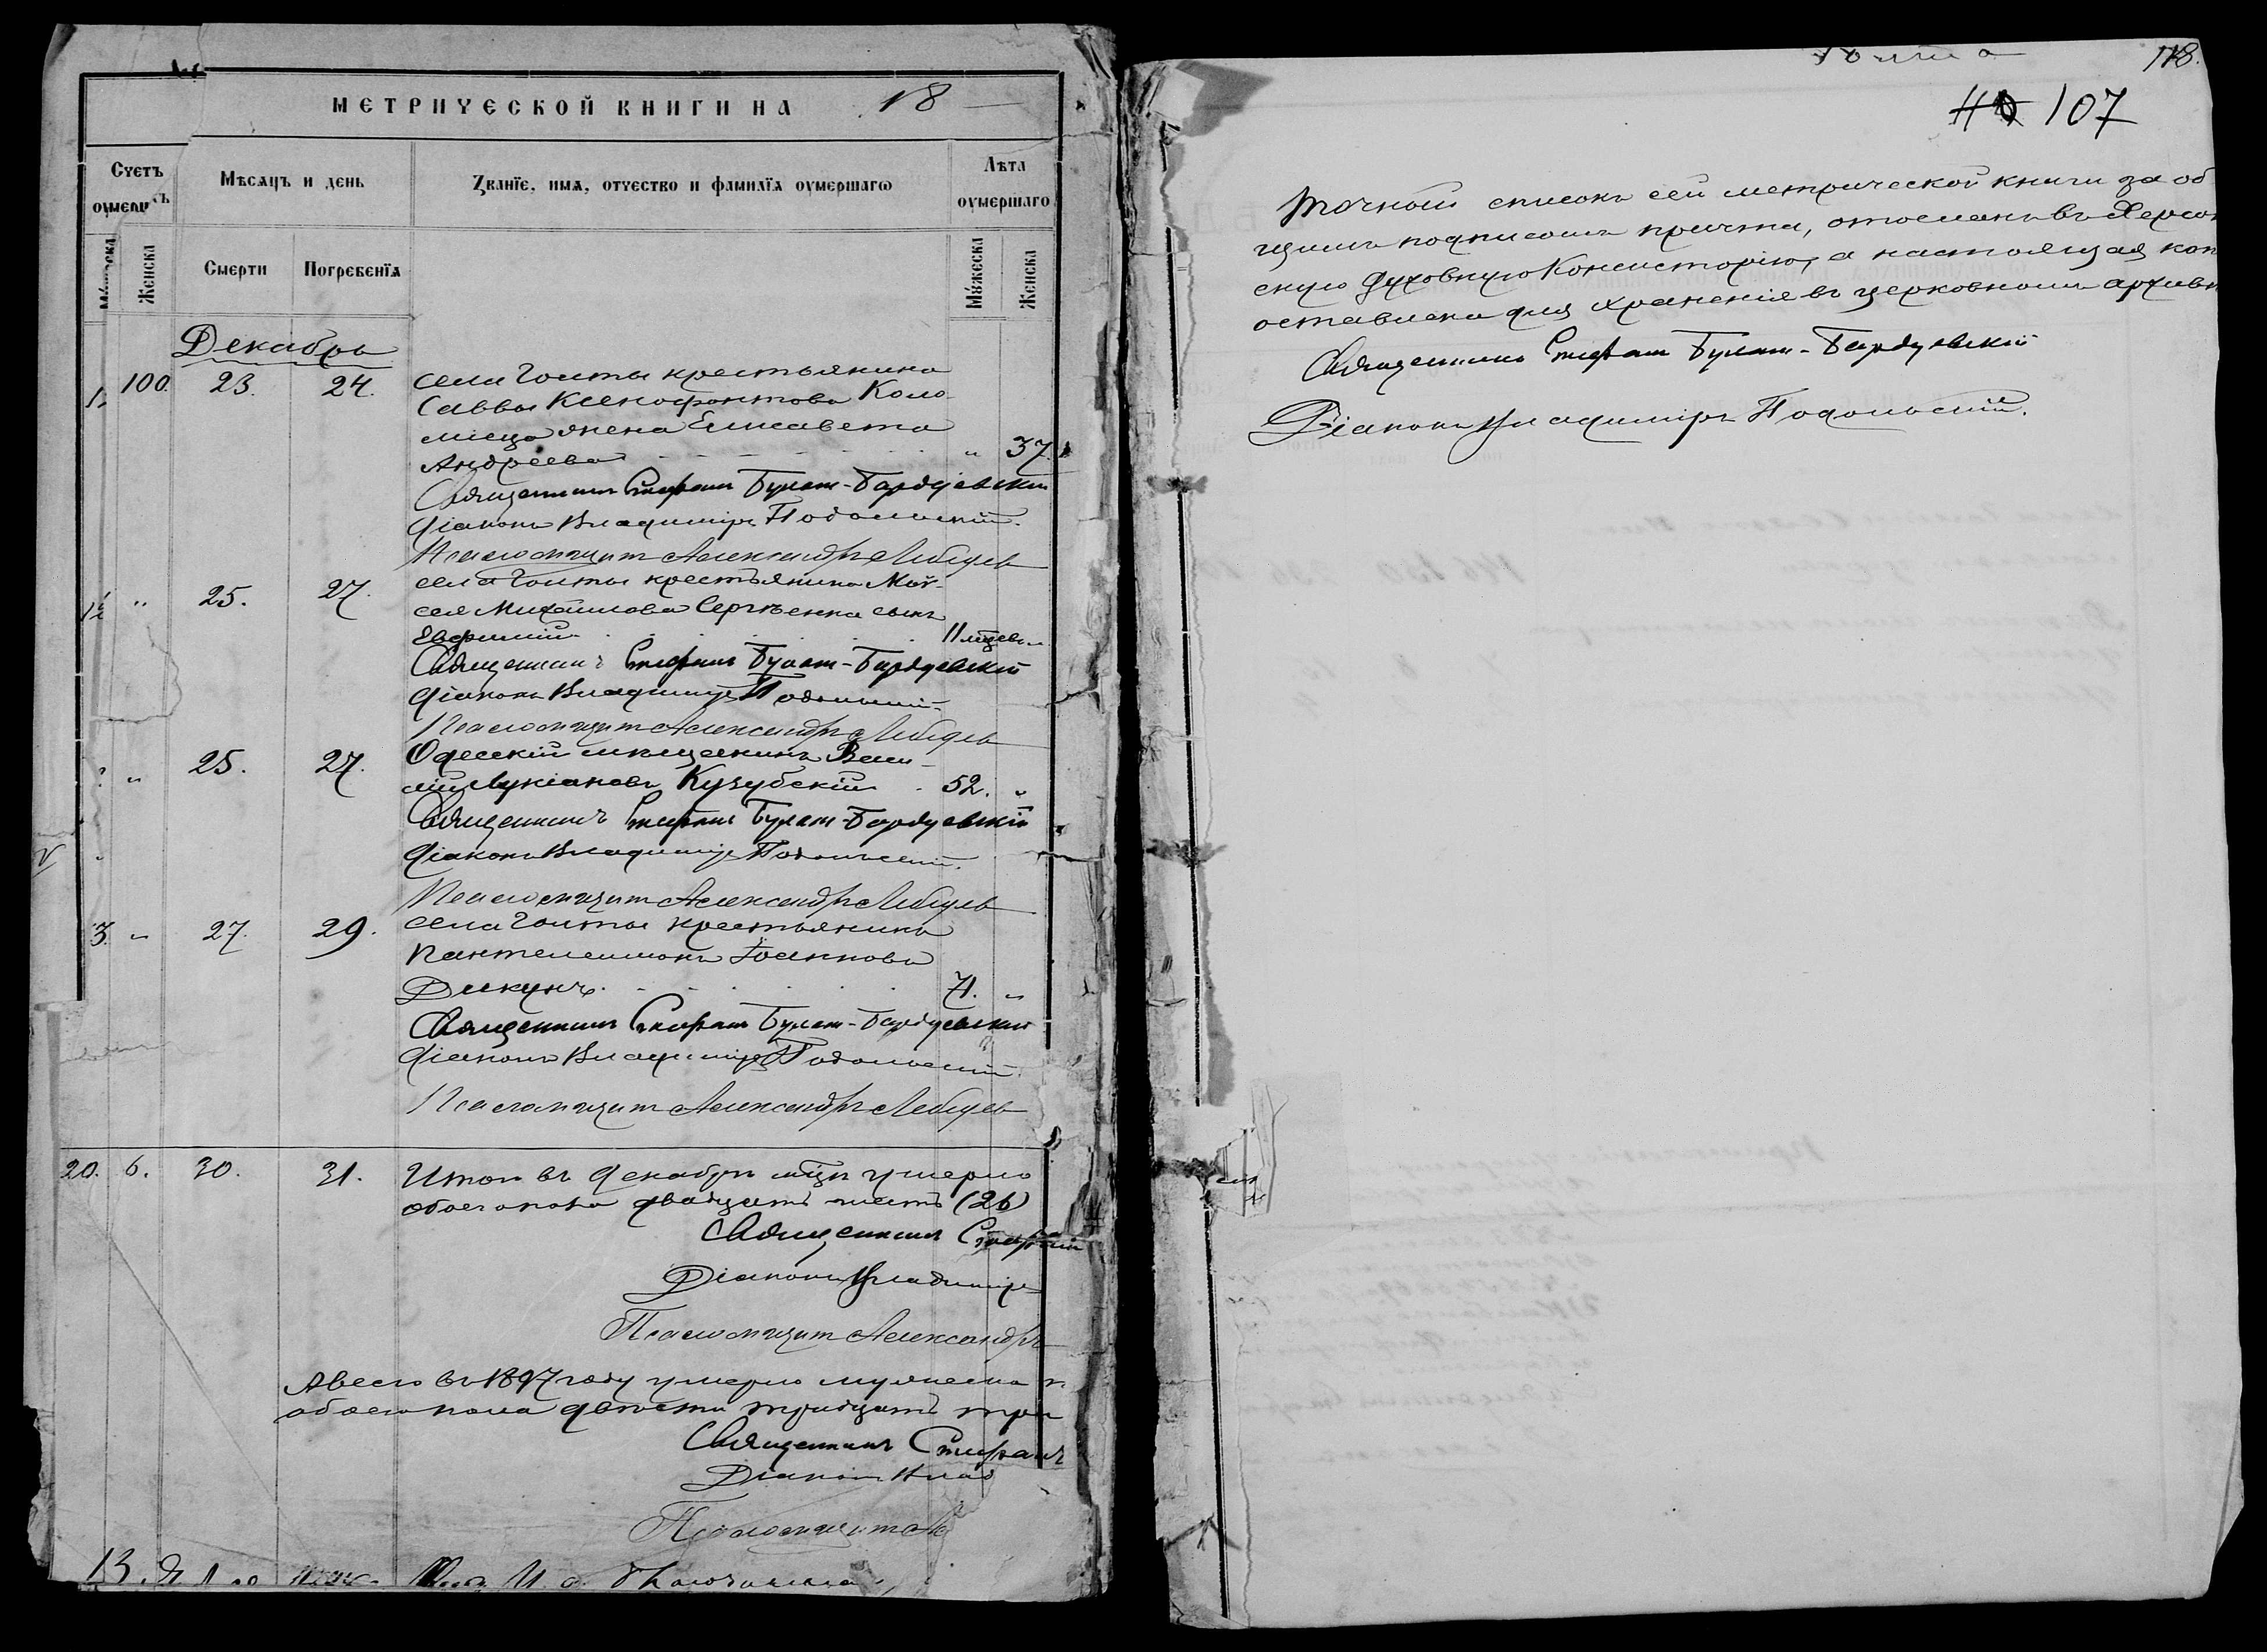 МЕТРИЧЕСКОЙ КНИГИ НА 18
Счетъ
Мѣсяцъ и день
Званїе, имя, отчество и фамилїя оумершагѡ
Лѣта
оумершаго
Женска
Смерти
Погребенїя
Мꙋжеска
Женска
Декабрь
100. 23. 24. села Голты крестьянина
Саввы Ксенофонтова Коло-
мійца жена Елисавета
Андреева " 37.
Священникъ Стефанъ Булат-Бардуевскій
Діаконъ Владиміръ Подольскій.
Псаломщикъ Александръ Лебедевъ
" 25. 27. села Голты крестьянина Мой-
сея Михайлова Сергѣенка сынъ
Евфимій 11 мѣсяцев
Священникъ Стефанъ Булат-Бардуевскій
Діаконъ Владиміръ Подольскій.
Псаломщикъ Александръ Лебедевъ
" 25. 27. Одесскій мѣщанинъ Васи-
лій Лукіановъ Кузубскій 52. "
Священникъ Стефанъ Булат-Бардуевскій
Діаконъ Владиміръ Подольскій.
Псаломщикъ Александръ Лебедевъ
3. " 27. 29. села Голты крестьянинъ
Пантелеимонъ Іоанновъ
Дикунъ 71. "
Священникъ Стефанъ Булат-Бардуевскій
Діаконъ Владиміръ Подольскій.
Псаломщикъ Александръ Лебедевъ
20. 6. 30. 31. Итого въ Декабрѣ мцѣ умерло
обоего пола двадцать шесть (26)
Священникъ Стефанъ
Діаконъ Владиміръ
Псаломщикъ Александръ
А всего въ 1897 году умерло мужеска
обоего пола двѣсти тридцать три
Священникъ Стефанъ
Діаконъ Влад
Псаломщикъ
118.
107
Точный списокъ сей метрической книги за об
щимъ подписомъ причта, отосланъ въ Херсон
скую Духовную Консисторію, а настоящая коп
оставлена для храненія въ церковномъ архивѣ
Священникъ Стефанъ Булат-Бардуевскій
Діаконъ Владиміръ Подольскій.